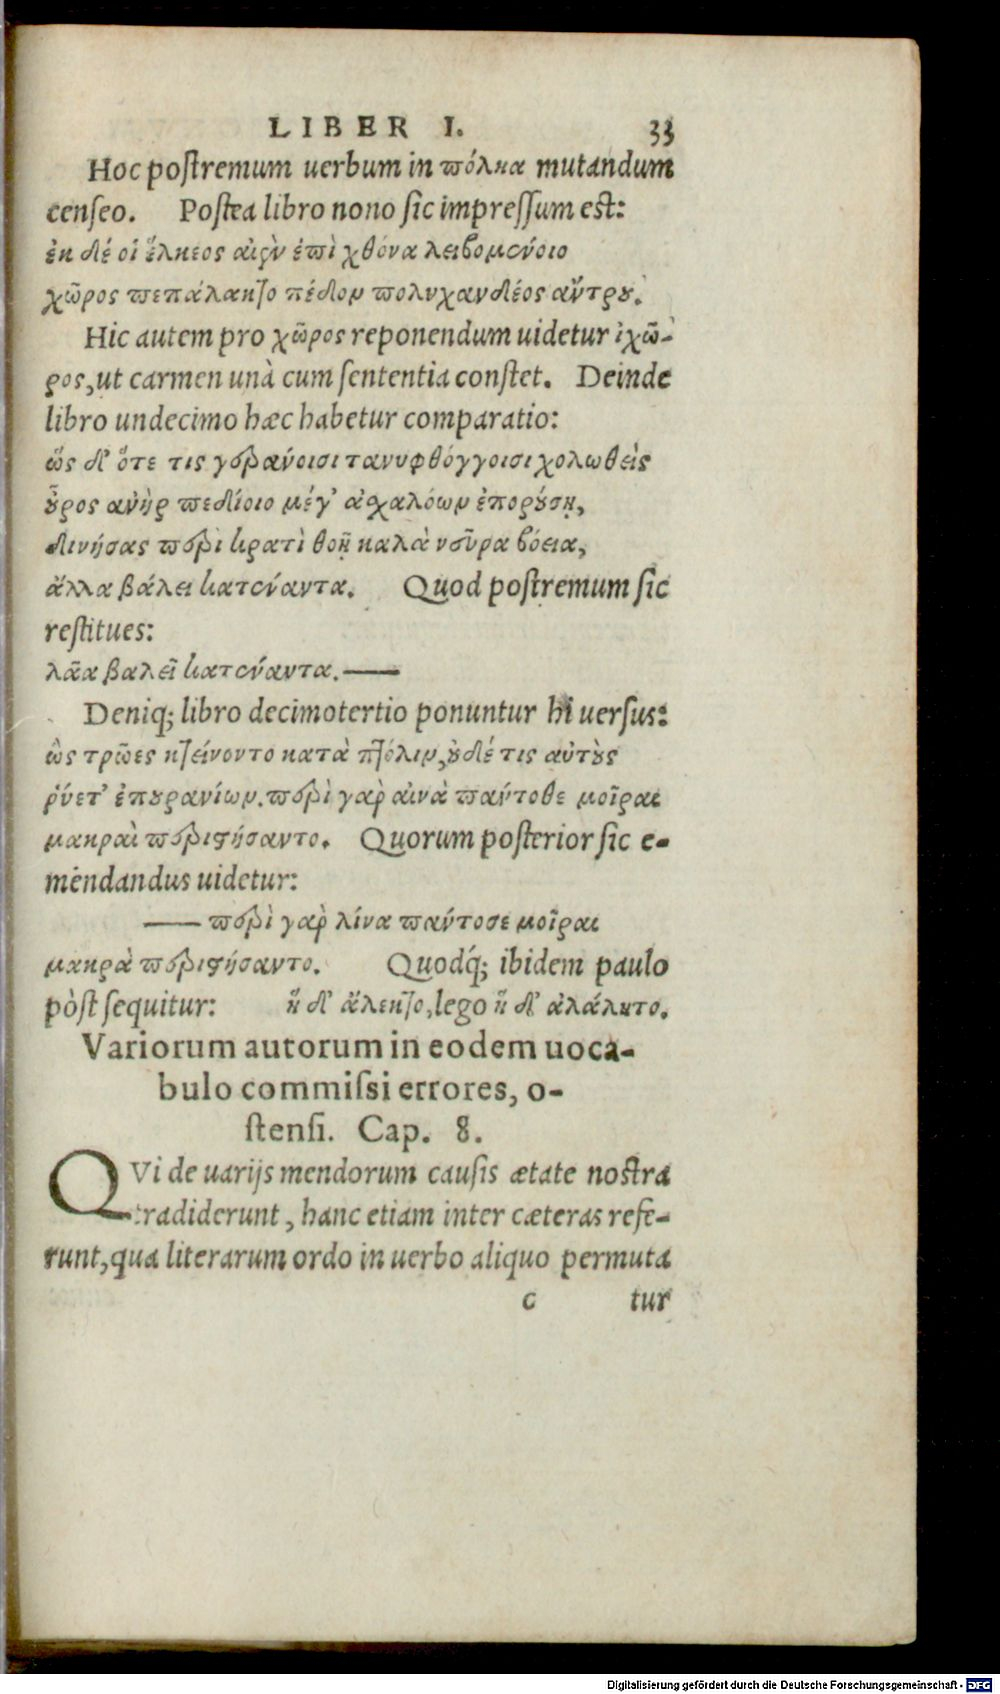 LIBER I. 33
Hoc postremum uerbum in πόλκα mutandum
censeo. Postea libro nono sic impressum est:
ἐκ δέ οἱ ἕλκεος αἰὲν ἐπὶ χθόνα λειβομένοιο
χῶρος πεπάλακτο πέδου πολυχανδέος ἄντρου.
Hic autem pro χῶρος reponendum uidetur ἰχῶ-
ρος, ut carmen unà cum sententia constet. Deinde
libro undecimo hæc habetur comparatio:
ὡς δ' ὅτε τις γεράνοισι τανυφθόγγοισι χολωθεὶς
οὖρος ἀνὴρ πεδίοιο μέγ' ἀσχαλόων ἐπορούσῃ,
δινήσας περὶ κρατὶ θοῇ καλὰ νεῦρα βόεια,
ἄλλα βάλει κατέναντα. Quod postremum sic
restitues:
λᾶα βαλεῖ κατέναντα.—
Deniq; libro decimotertio ponuntur hi uersus:
ὣς τρῶες κτείνοντο κατὰ πτόλιν, οὐδέ τις αὐτοὺς
ῥύετ' ἐπουρανίων. περὶ γὰρ αἰνὰ πάντοθε μοῖραι
μακραὶ περιστήσαντο. Quorum posterior sic e-
mendandus uidetur:
— περὶ γὰρ λίνα πάντοσε μοῖραι
μακρὰ περιστήσαντο. Quodq́; ibidem paulo
pòst sequitur: ἣ δ' ἄλεκτο, lego ἣ δ' ἀλάλκτο.
Variorum autorum in eodem uoca-
bulo commissi errores, o-
stensi. Cap. 8.
QVi de uarijs mendorum causis ætate nostra
tradiderunt, hanc etiam inter cæteras refe-
runt, qua literarum ordo in uerbo aliquo permuta
c tur
Digitalisierung gefördert durch die Deutsche Forschungsgemeinschaft - DFG